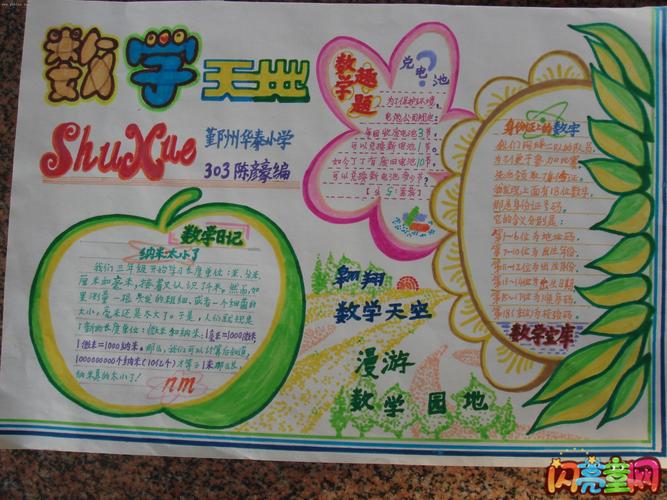 数学天地
ShuXue
鄞州华泰小学
303 陈豪编
数学趣题
兑电池
为了保护环境,
电池公司规定:
每回收废电池3节,
可以兑换新电池1节。
如今丁丁有废旧电池10节,
可以兑换新电池 节。
数学日记
纳米太小了
我们三年级开始学习长度单位:米、分米、
厘米和毫米,接着又认识了千米。然而,如
果测量一根头发的粗细,或者一个细菌的
大小,毫米还是太大了。于是,人们就规定
了新的长度单位:微米和纳米。1毫米=1000微米,
1微米=1000纳米。那么,我们可以计算后知道,
1000000000个纳米(10亿个)才等于1米那么长,
纳米真的太小了!
nm
翱翔
数学天空
漫游
数学园地
身份证上的数字
我们网蜂二队的队员,
为了
先去领取了身份证。
我发现上面有18位数字,
那是身份证号码。
它的含义分别是:
第1~6位为地址码,
第7~10位为出生年份,
第11~12位为出生月份,
第13~14位为出生日期,
第15~17位为顺序码,
第18位为校验码。
数学宝库
闪亮童网